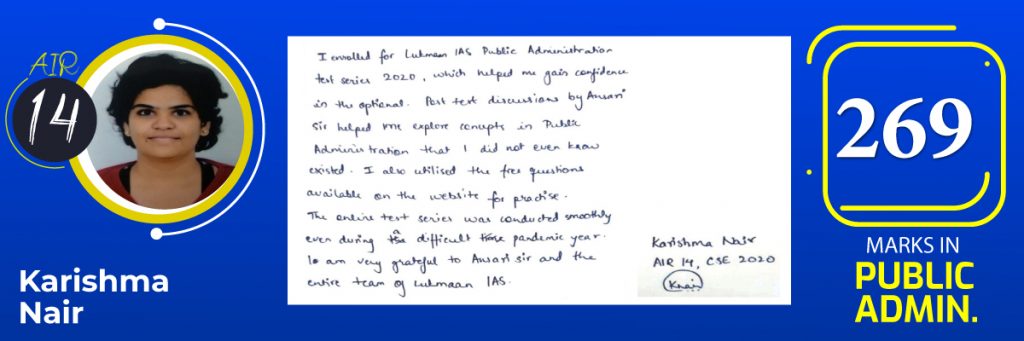 AIR
14
Karishma
Nair
I enrolled for Lukmaan IAS Public Administration
test series 2020, which helped me gain confidence
in the optional. Post test discussions by Ansari
Sir helped me explore concepts in Public
Administration that I did not even know
existed. I also utilised the free questions
available on the website for practise.
The entire test series was conducted smoothly
even during a difficult pandemic year.
I am very grateful to Ansari sir and the
entire team of Lukmaan IAS.
Karishma Nair
AIR 14, CSE 2020
Knair
269
MARKS IN
PUBLIC
ADMIN.